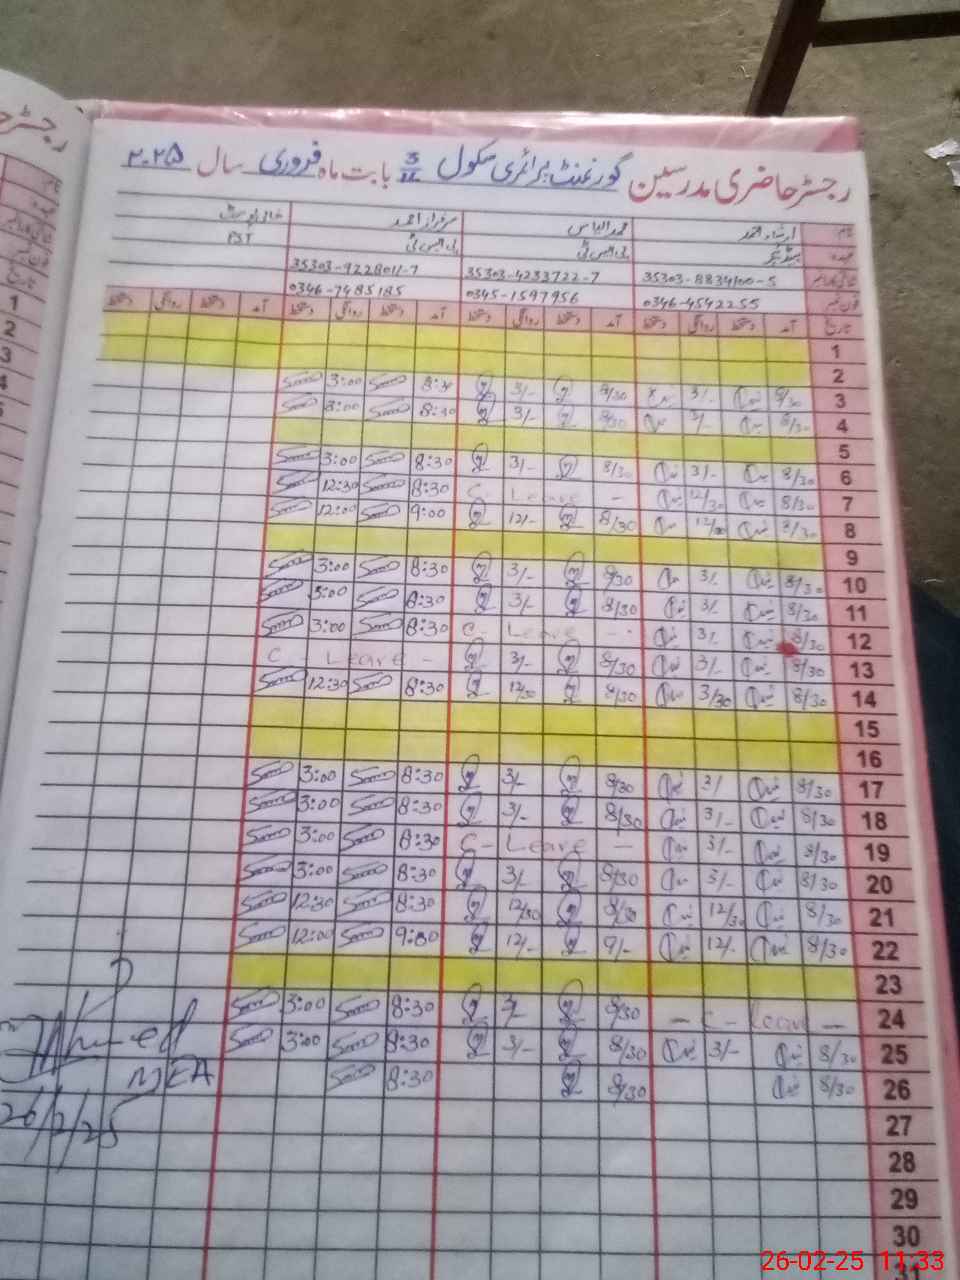 رجسٹر حاضری مدرسین گورنمنٹ پرائمری سکول 3/1L بابت ماہ فروری سال ۲۰۲۵
نام ارشاد احمد محمد الیاس سرفراز احمد خالی پوسٹ
عہدہ ہیڈ ٹیچر پی ایس ٹی پی ایس ٹی PST
35303-8834100-5 35303-4233722-7 35303-9228011-7
فون نمبر 0346-4542255 0345-1597956 0346-7485185
تاریخ آمد دستخط روانگی دستخط آمد دستخط روانگی دستخط آمد دستخط روانگی دستخط آمد دستخط روانگی دستخط
1
2
3 8/30 3/- 8/30 3/- 8:30 3:00
4 8/30 3/- 8/30 3/- 8:30 3:00
5
6 8/30 3/- 8/30 3/- 8:30 3:00
7 8/30 12/30 C - Leave - 8:30 12:30
8 8/30 12/00 8/30 12/- 9:00 12:00
9
10 8/30 3/- 8/30 3/- 8:30 3:00
11 8/30 3/- 8/30 3/- 8:30 3:00
12 8/30 3/- C - Leave - 8:30 3:00
13 8/30 3/- 8/30 3/- C - Leave -
14 8/30 3/30 8/30 12/30 8:30 12:30
15
16
17 8/30 3/ 8/30 3/- 8:30 3:00
18 8/30 3/- 8/30 3/- 8:30 3:00
19 8/30 3/- C - Leave - 8:30 3:00
20 8/30 3/- 8/30 3/- 8:30 3:00
21 8/30 12/30 8/30 12/30 8:30 12:30
22 8/30 12/- 9/- 12/- 9:00 12:00
23
24 - C - Leave - 8/30 3/- 8:30 3:00
25 8/30 3/- 8/30 3/- 8:30 3:00
26 8/30 8/30 8:30
27
28
29
30
31
Ahmed
MEA
26/2/25
26-02-25 11:33